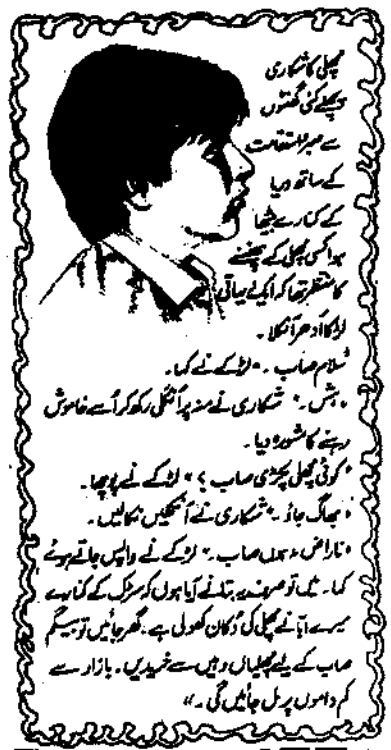 مچھلی کا شکاری
پچھلے کئی گھنٹوں
سے صبر و استقامت
کے ساتھ دریا
کے کنارے بیٹھا
ہوا کسی مچھلی کے پھنسنے
کا منتظر تھا کہ ایک دیہاتی
لڑکا ادھر آ نکلا۔
"سلام صاب۔" لڑکے نے کہا۔
"ہش۔" شکاری نے منہ پر اُنگلی رکھ کر اُسے خاموش
رہنے کا مشورہ دیا۔
"کوئی مچھلی پکڑی صاب؟" لڑکے نے پوچھا۔
"بھاگ جاؤ۔" شکاری نے آنکھیں نکالیں۔
"ناراض نہ ہوں صاب۔" لڑکے نے واپس جاتے ہوئے
کہا۔ میں تو صرف یہ بتانے آیا ہوں کہ سڑک کے کنارے
میرے ابا نے مچھلی کی دُکان کھولی ہے۔ گھر جائیں تو بیگم
صاب کے لیے مچھلیاں وہیں سے خریدیں۔ بازار سے
کم داموں پر مل جائیں گی۔"